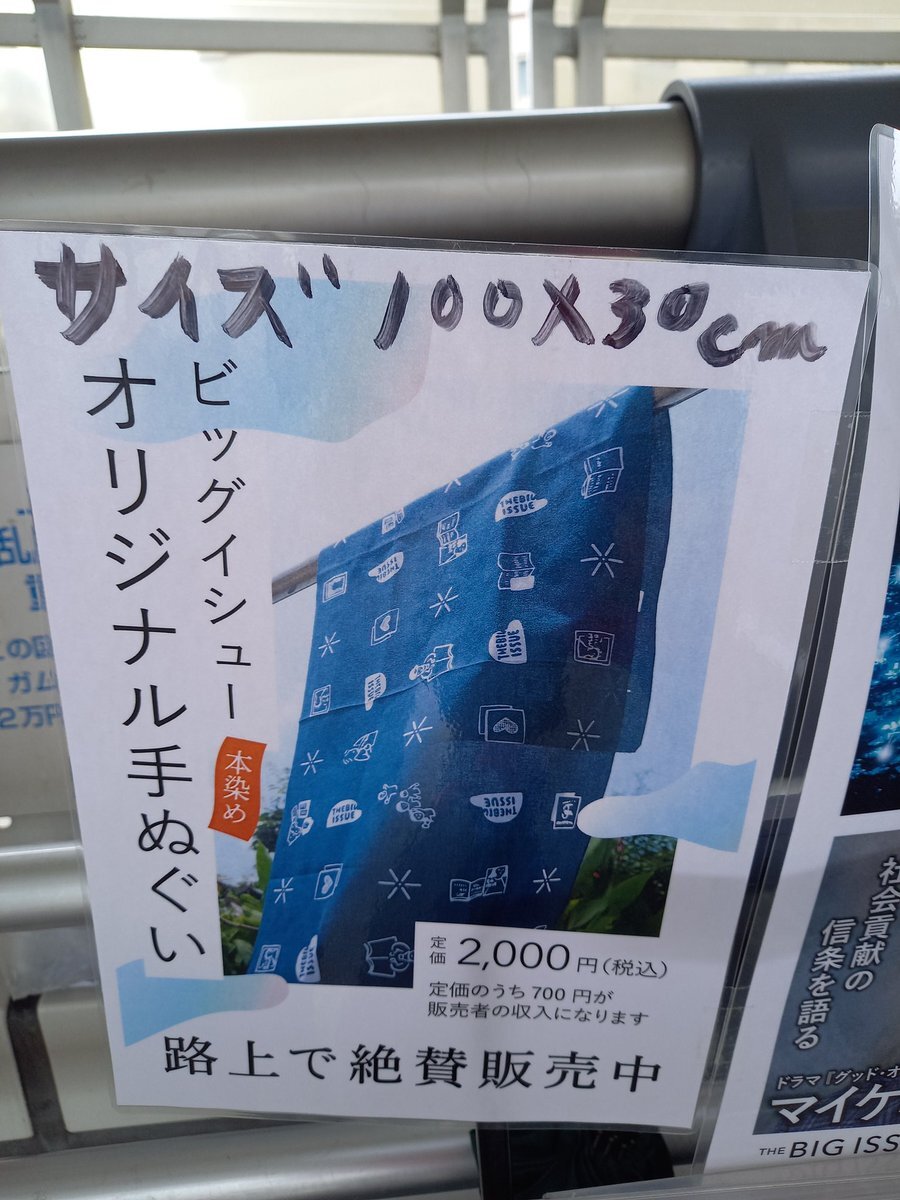 サイズ 100×30cm
ビッグイシュー
オリジナル手ぬぐい
本染め
THE BIG ISSUE
定価 2,000円(税込)
定価のうち700円が
販売者の収入になります
路上で絶賛販売中
社会貢献の
信条を語る
ドラマ『グッド・
マイケ
THE BIG ISS
ガム
2万円